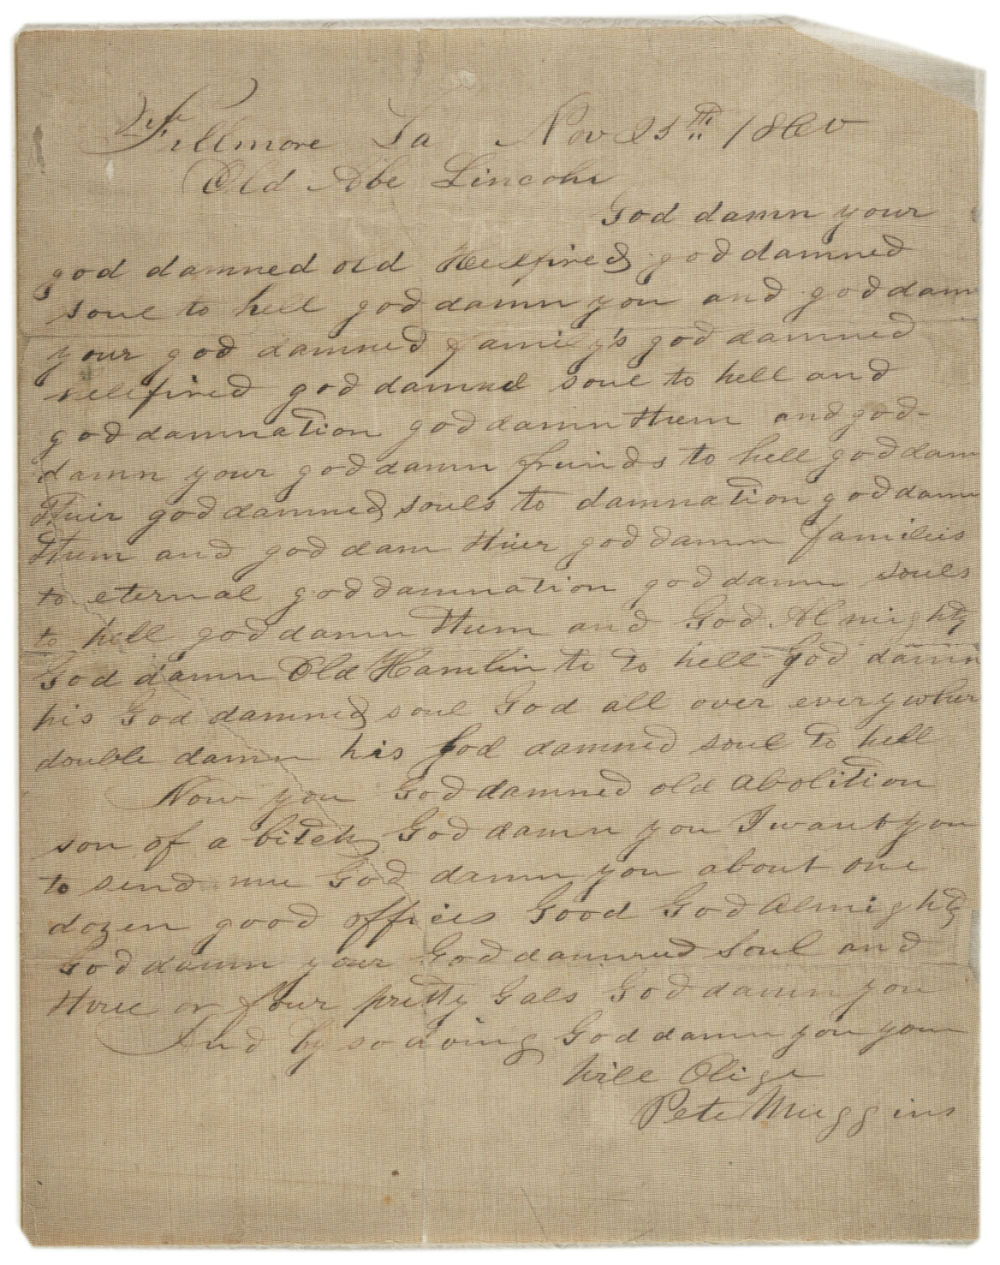 Fillmore La Nov 25th 1860
Old Abe Lincoln
God damn your
god damned old Hellfired god damned
soul to hell god damn you and god dam
your god damned family's god damned
hellfired god damned soul to hell and
god damnation god damn them and god
damn your god damn friends to hell god dam
their god damned souls to damnation god damn
them and god dam their god damn families
to eternal god damnation god damn souls
to hell god damn them and God Almighty
God damn Old Hamlin to to hell God damn
his God damned soul God all over everywhere
double damn his God damned soul to hell
Now you God damned old Abolition
son of a bitch God damn you I want you
to send me God damn you about one
dozen good offices Good God Almighty
God damn your God damned soul and
three or four pretty Gals God damn you
And by so doing God damn you you
will Oblige
Pete Muggins